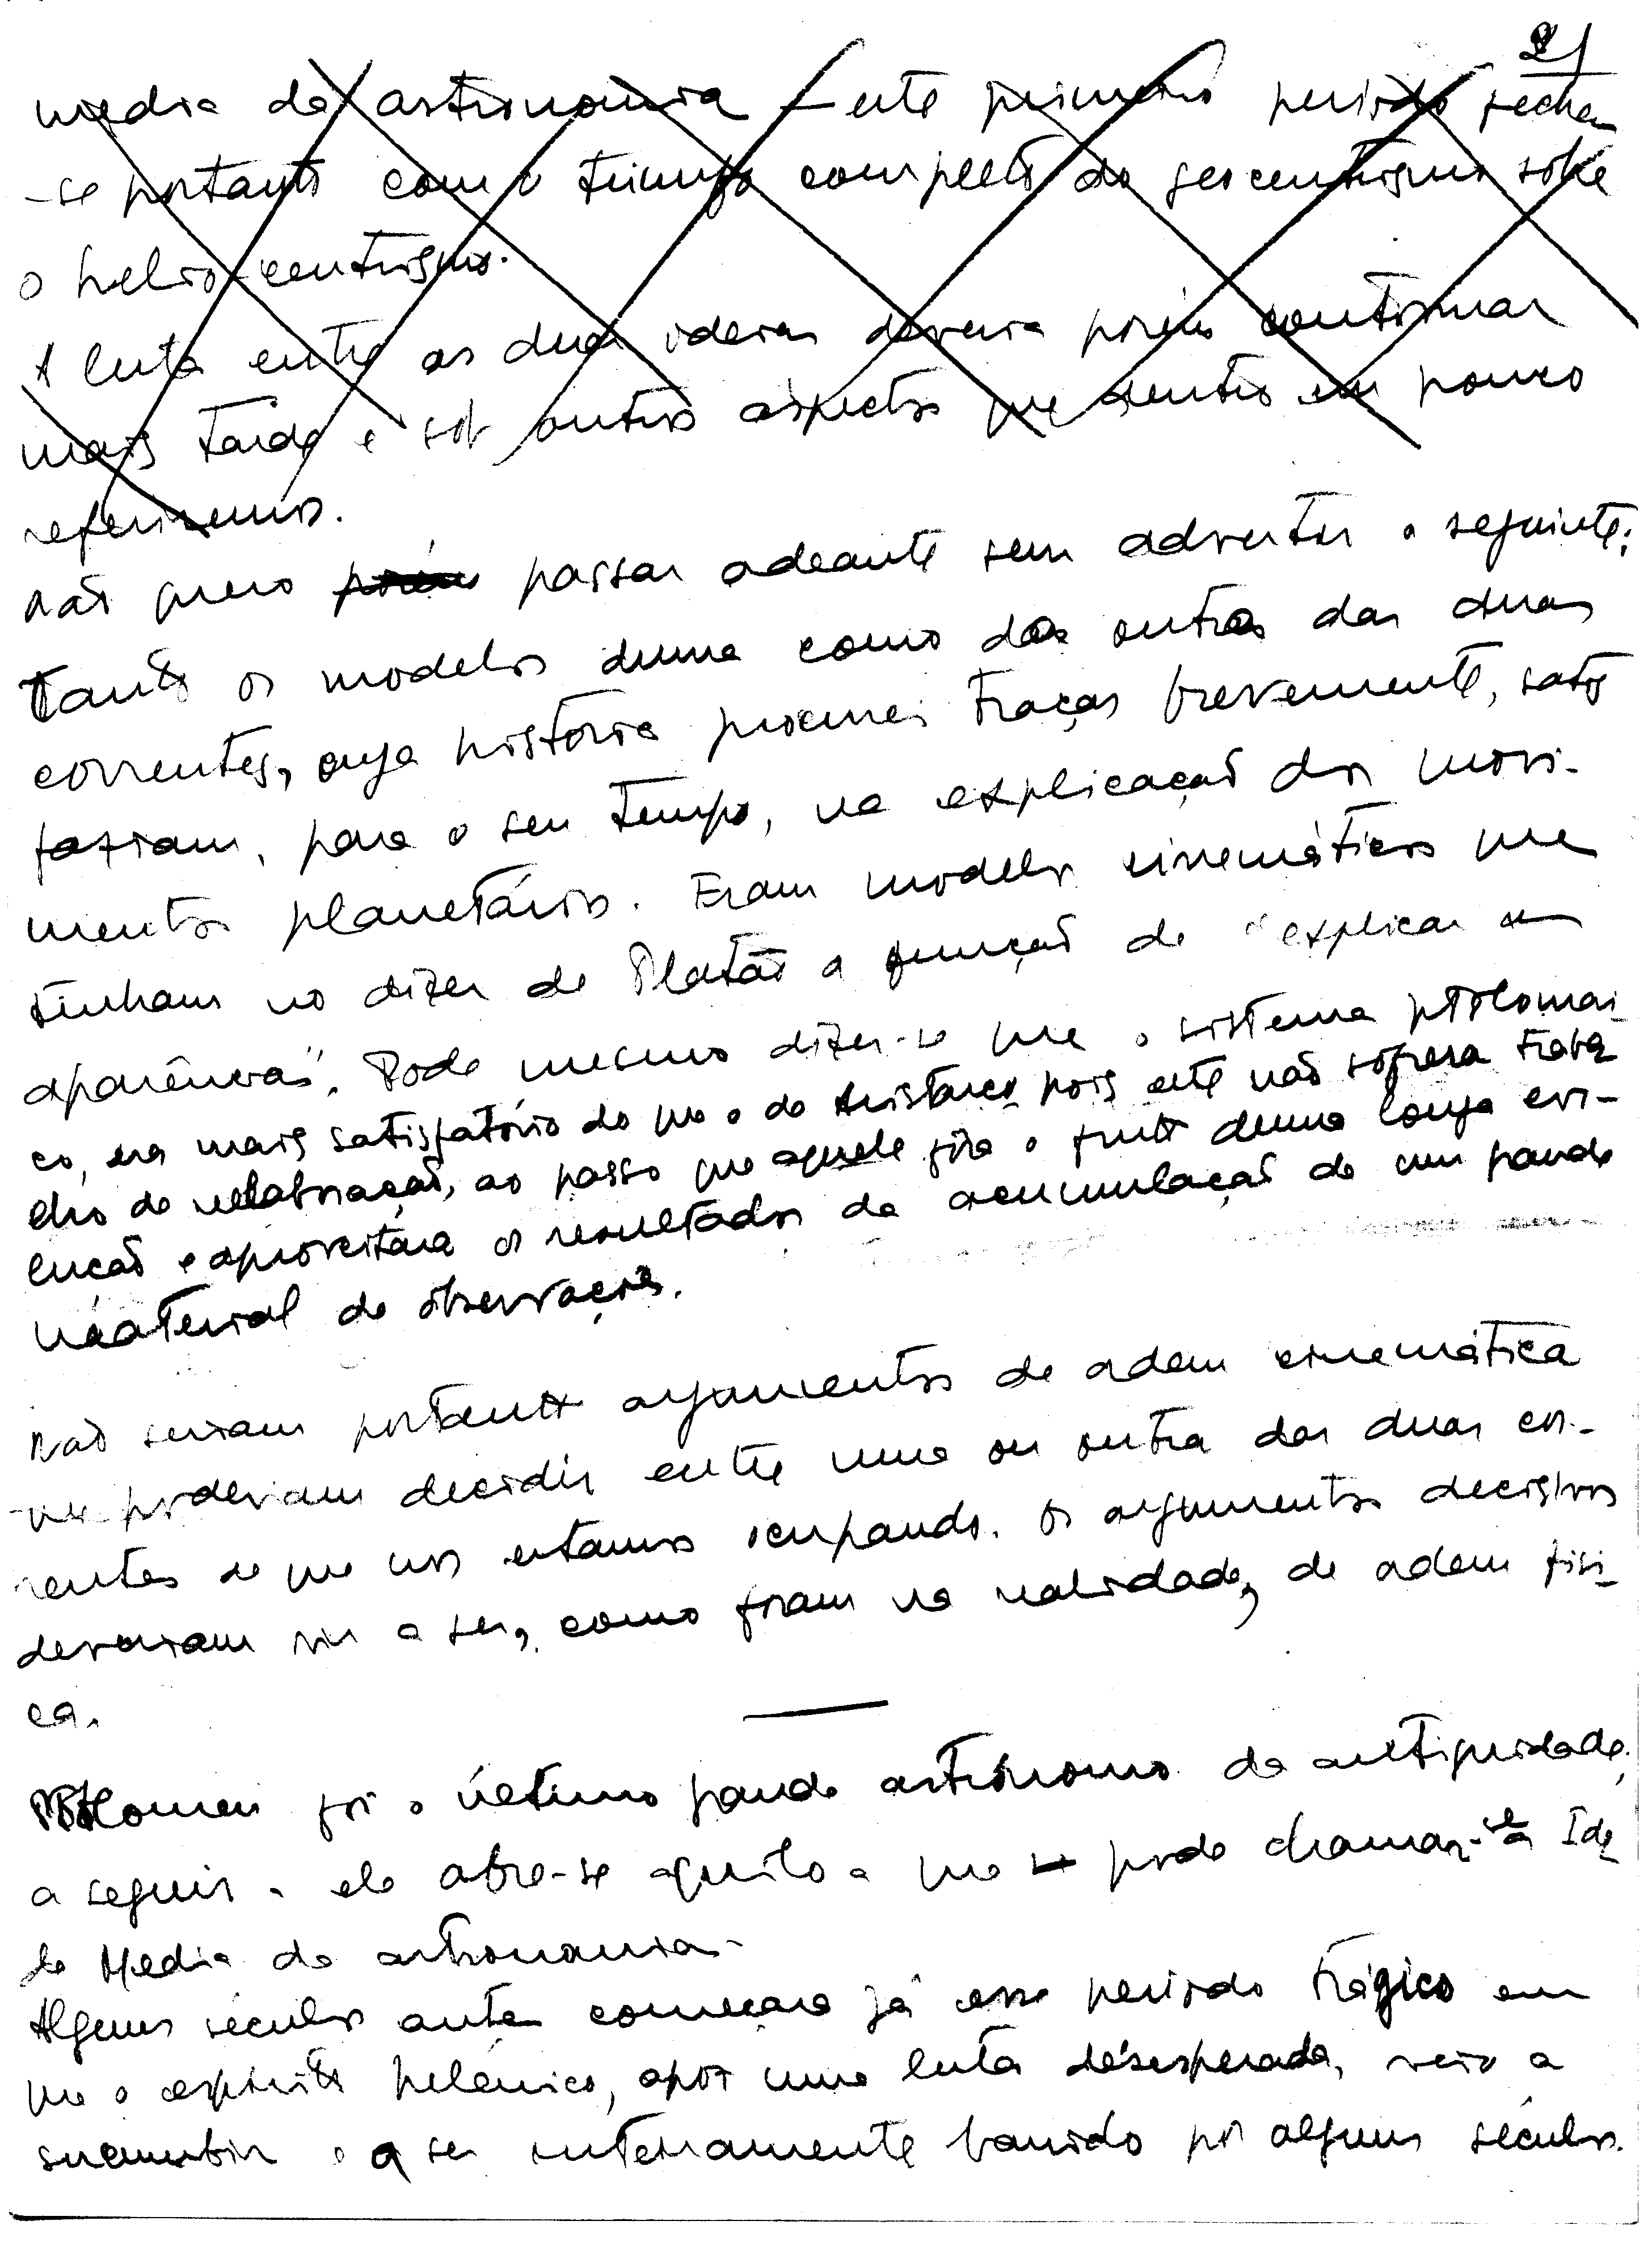 21
média da astronomia – este primeiro período fecha-
-se portanto com o triunfo completo do geocentrismo sobre
o heliocentrismo.
A luta entre as duas ideias deveria porém continuar
mais tarde e sob outros aspectos que dentro em pouco
referiremos.
Não quero porém passar adeante sem advertir o seguinte:
Tanto os modelos duma como da outra das duas
correntes, cuja história procurei traçar brevemente, satis
faziam, para o seu tempo, na explicação dos movi-
mentos planetários. Eram modelos cinemáticos que
tinham no dizer de Platão a função de "explicar as
aparências". Pode mesmo dizer-se que o sistema ptolomai-
co, era mais satisfatório do que o de Aristarco, pois este não sofrera traba-
lhos de reelaboração, ao passo que aquele fôra o fruto duma longa evo-
lução e aproveitara os resultados da acumulação de um grande
material de observações.
Não seriam portanto argumentos de ordem cinemática
que poderiam decidir entre uma ou outra das duas cor-
rentes de que nos estamos ocupando. Os argumentos decisivos
deveriam vir a ser, como foram na realidade, de ordem físi-
ca.
Ptolomeu foi o último grande astrónomo da antiguidade;
a seguir a ele abre-se aquilo a que se pode chamar-se a Ida
de Média da astronomia.
Alguns séculos antes começara já esse período trágico em
que o espírito helénico, após uma luta desesperada, veio a
sucumbir e a ser inteiramente banido por alguns séculos.